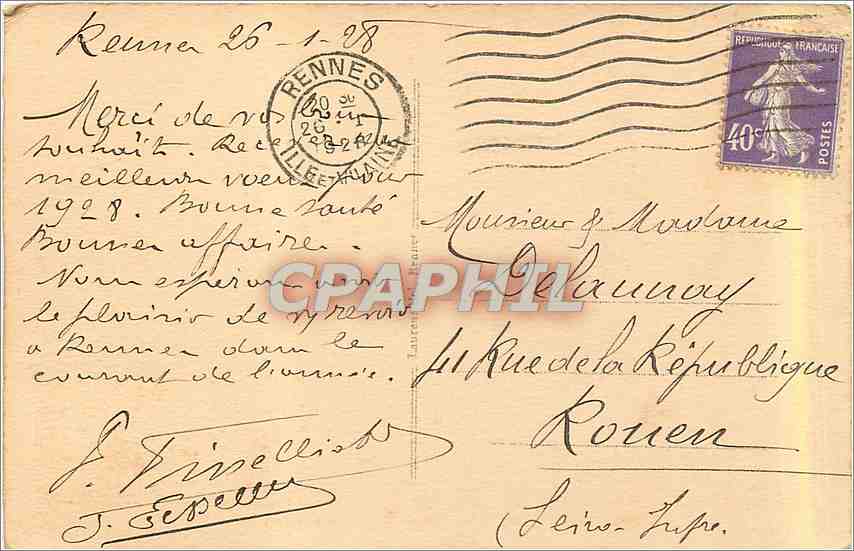 Rennes 26-1-28
RENNES
20 30
26 - 1
28
ILLE-ET-VILAINE
REPUBLIQUE FRANÇAISE
40c
POSTES
Merci de vos bons
souhaits. Recevez
meilleurs voeux pour
1928. Bonne santé
Bonnes affaires.
Nous espérons avoir
le plaisir de vs revoir
a Rennes dans le
courant de l'année.
Monsieur & Madame
Delaunay
41 Rue de la République
Rouen
(Seine-Infre.
CPAPHIL
Rennes